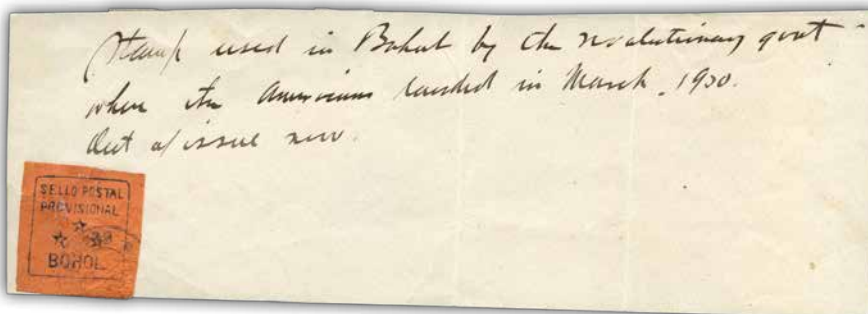 Stamp used in Bohol by the revolutionary govt
when the Americans landed in March, 1900.
Out of issue now.
SELLO POSTAL
PROVISIONAL
BOHOL